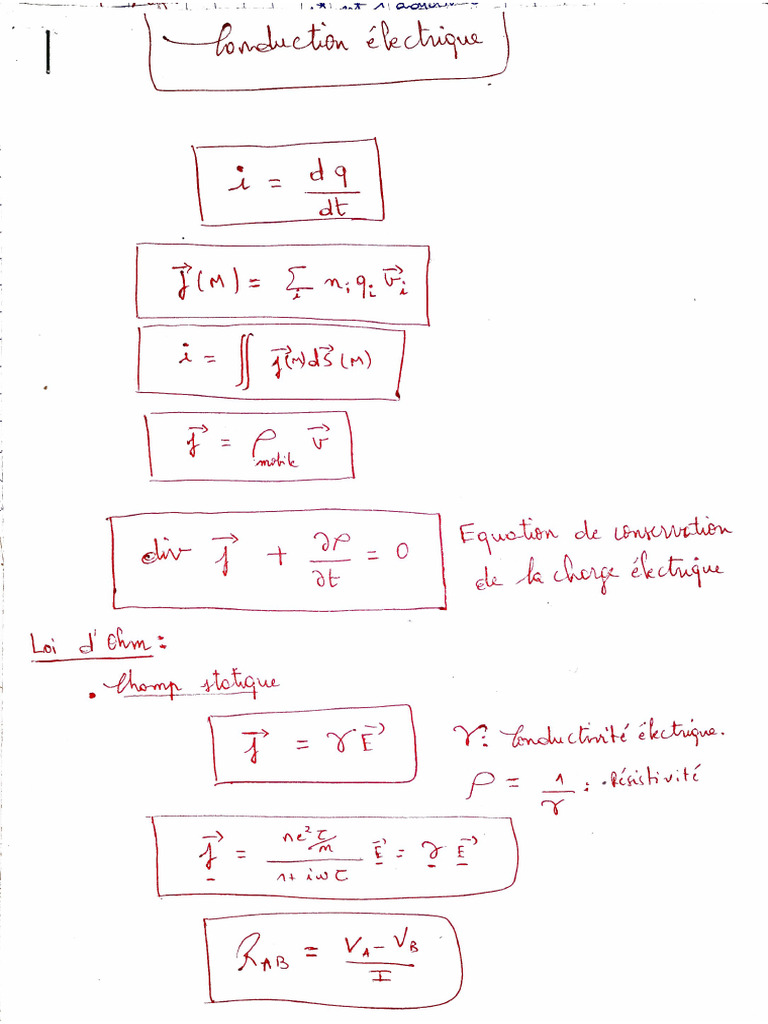 Conduction électrique
i = dq/dt
j⃗(M) = Σ_i n_i q_i v⃗_i
i = ∬ j⃗(M) dS⃗(M)
j⃗ = ρ_mobile v⃗
div j⃗ + ∂ρ/∂t = 0 Equation de conservation
de la charge électrique
Loi d'Ohm :
• Champ statique
j⃗ = γ E⃗ γ : Conductivité électrique.
ρ = 1/γ : Résistivité
j⃗ = (ne²τ/m)/(1 + iωτ) E⃗ = γ E⃗
R_AB = (V_A - V_B)/I